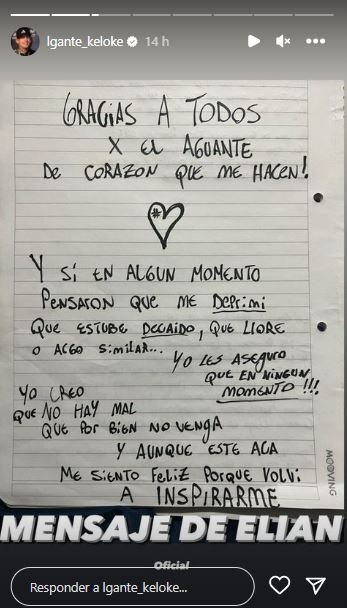 lgante_keloke 14 h
GRACIAS A TODOS
X EL AGUANTE
DE CORAZON QUE ME HACEN!
#
Y SÍ EN ALGUN MOMENTO
PENSARON QUE ME DEPRIMI
QUE ESTUBE DECAIDO, QUE LLORE
O ALGO SIMILAR...
YO LES ASEGURO
QUE EN NINGUN
MOMENTO!!!
YO CREO
QUE NO HAY MAL
QUE POR BIEN NO VENGA
Y AUNQUE ESTE ACA
ME SIENTO FELIZ PORQUE VOLVI
A INSPIRARME
MOOVING
MENSAJE DE ELIAN
Oficial
Responder a lgante_keloke...